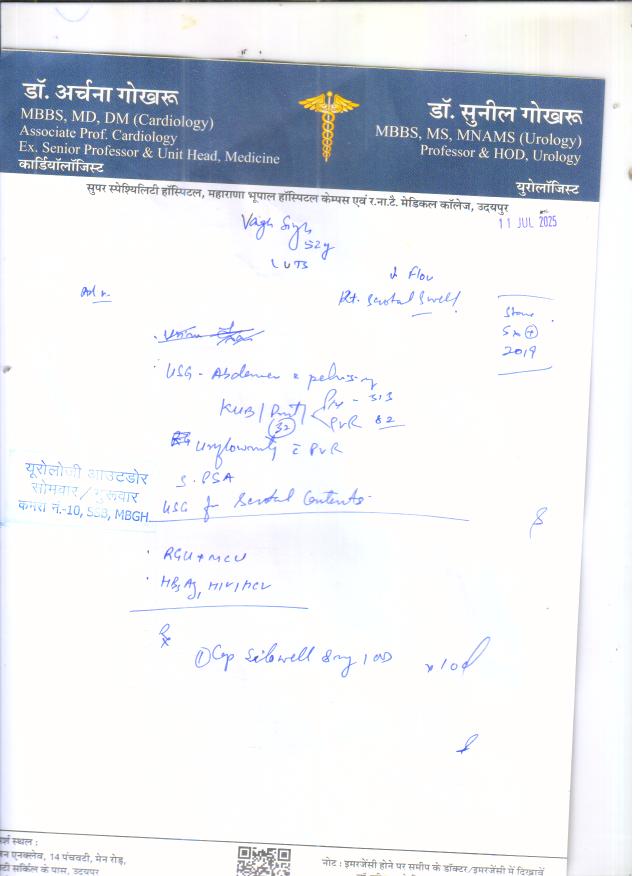 डॉ. अर्चना गोखरू
MBBS, MD, DM (Cardiology)
Associate Prof. Cardiology
Ex. Senior Professor & Unit Head, Medicine
कार्डियॉलॉजिस्ट
डॉ. सुनील गोखरू
MBBS, MS, MNAMS (Urology)
Professor & HOD, Urology
युरोलॉजिस्ट
सुपर स्पेश्यिलिटी हॉस्पिटल, महाराणा भूपाल हॉस्पिटल केम्पस एवं र.ना.टै. मेडिकल कॉलेज, उदयपुर
11 JUL 2025
Singh
52y
LUTS
↓ Flow
Rt. Scrotal Swell
Adv.
Stone
Sx +
2019
USG - Abdomen & pelvis
KUB/Prost/
Pre - 313
32
PVR 82
Uroflowmetry c PVR
S. PSA
USG for Scrotal Contents
यूरोलोजी आउटडोर
सोमवार/गुरूवार
कमरा नं.-10, SSB, MBGH
RGU + MCU
HBsAg, HIV, HCV
Rx
① Cap 8mg 1 OD x 10d
नोट : इमरजेंसी होने पर समीप के डॉक्टर/इमरजेंसी में दिखावें
र्श स्थल :
न एनक्लेव, 14 पंचवटी, मेन रोड़,
टी सर्किल के पास, उदयपुर